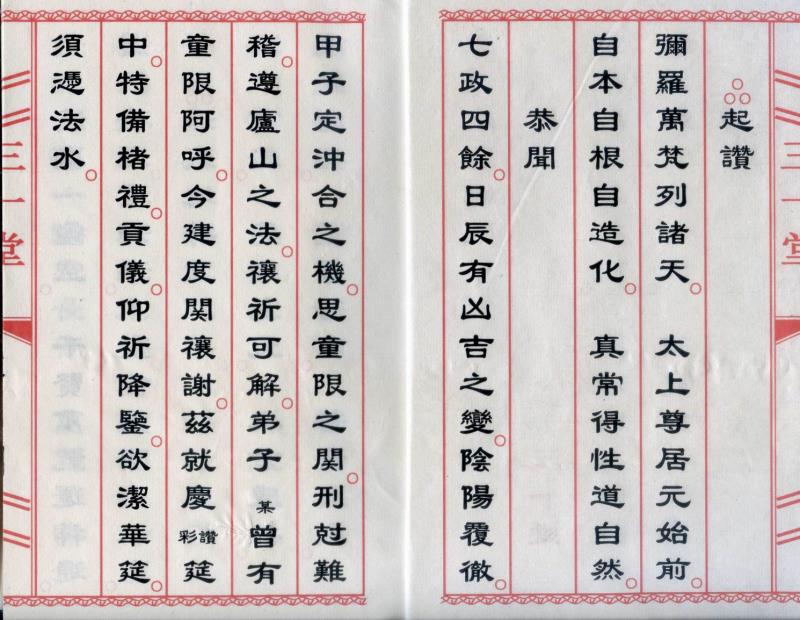 起讚
彌羅萬梵列諸天。 太上尊居元始前。
自本自根自造化。 真常得性道自然。
恭聞
七政四餘。日辰有凶吉之變。陰陽覆徹。
三一堂
甲子定沖合之機。思童限之関。刑尅難
稽。遵廬山之法。禳祈可解。弟子某曾有
童限阿呼。今建度関禳謝。茲就慶讚彩筵
中。特備楮禮。貢儀。仰祈降鑒。欲潔華筵。
須憑法水。
三一堂